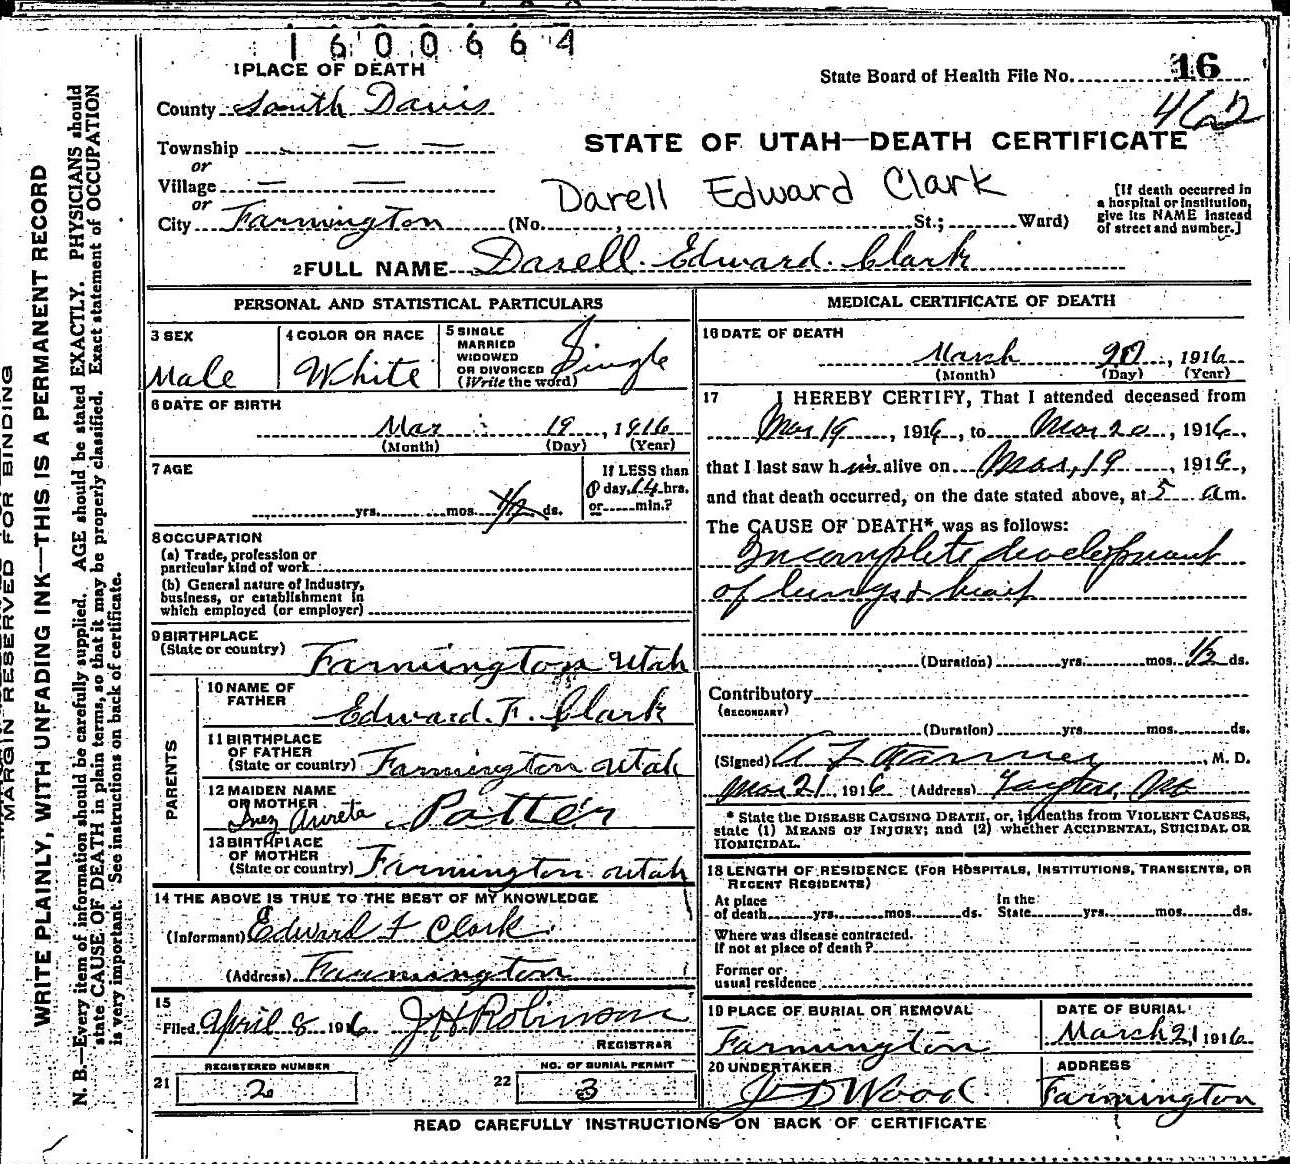 1600664
1 PLACE OF DEATH
State Board of Health File No. 16
462
County South Davis
STATE OF UTAH—DEATH CERTIFICATE
Township
or
Village
or
Darell Edward Clark
[If death occurred in
a hospital or institution,
give its NAME instead
of street and number.]
City Farmington (No. , St.; Ward)
2 FULL NAME Darell Edward Clark
PERSONAL AND STATISTICAL PARTICULARS
3 SEX
Male
4 COLOR OR RACE
White
5 SINGLE
MARRIED
WIDOWED
OR DIVORCED
(Write the word)
Single
6 DATE OF BIRTH
Mar 19, 1916
(Month) (Day) (Year)
7 AGE
yrs. mos. 1/2 ds.
If LESS than
0 day, 14 hrs.
or min.?
8 OCCUPATION
(a) Trade, profession or
particular kind of work
(b) General nature of industry,
business, or establishment in
which employed (or employer)
9 BIRTHPLACE
(State or country) Farmington Utah
PARENTS
10 NAME OF
FATHER Edward F. Clark
11 BIRTHPLACE
OF FATHER
(State or country) Farmington Utah
12 MAIDEN NAME
OF MOTHER
Inez Aureta Potter
13 BIRTHPLACE
OF MOTHER
(State or country) Farmington Utah
14 THE ABOVE IS TRUE TO THE BEST OF MY KNOWLEDGE
(Informant) Edward F Clark
(Address) Farmington
15
Filed April 8 1916 J H Robinson
REGISTRAR
REGISTERED NUMBER
21 2
NO. OF BURIAL PERMIT
22 3
MEDICAL CERTIFICATE OF DEATH
16 DATE OF DEATH
March 20, 1916
(Month) (Day) (Year)
17 I HEREBY CERTIFY, That I attended deceased from
Mar 19, 1916, to Mar 20, 1916,
that I last saw him alive on Mar, 19, 1916,
and that death occurred, on the date stated above, at 5 am.
The CAUSE OF DEATH* was as follows:
Incomplete development
of lungs &
(Duration) yrs. mos. 1/2 ds.
Contributory
(SECONDARY)
(Duration) yrs. mos. ds.
(Signed) A Z Tanner, M. D.
Mar 21 1916 (Address) Layton,
* State the DISEASE CAUSING DEATH, or, in deaths from VIOLENT CAUSES,
state (1) MEANS OF INJURY; and (2) whether ACCIDENTAL, SUICIDAL OR
HOMICIDAL.
18 LENGTH OF RESIDENCE (FOR HOSPITALS, INSTITUTIONS, TRANSIENTS, OR
RECENT RESIDENTS)
At place
of death yrs. mos. ds.
In the
State yrs. mos. ds.
Where was disease contracted.
If not at place of death?
Former or
usual residence
19 PLACE OF BURIAL OR REMOVAL
Farmington
DATE OF BURIAL
March 21 1916
20 UNDERTAKER
J D Wood
ADDRESS
Farmington
READ CAREFULLY INSTRUCTIONS ON BACK OF CERTIFICATE
MARGIN RESERVED FOR BINDING
WRITE PLAINLY, WITH UNFADING INK—THIS IS A PERMANENT RECORD
N. B.—Every item of information should be carefully supplied. AGE should be stated EXACTLY. PHYSICIANS should
state CAUSE OF DEATH in plain terms, so that it may be properly classified. Exact statement of OCCUPATION
is very important. See instructions on back of certificate.